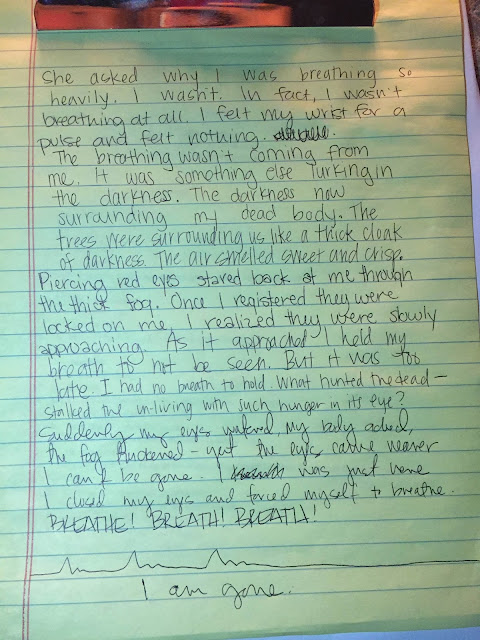 She asked why I was breathing so
heavily. I wasn't. In fact, I wasn't
breathing at all. I felt my wrist for a
pulse and felt nothing.
The breathing wasn't coming from
me. It was something else lurking in
the darkness. The darkness now
surrounding my dead body. The
trees were surrounding us like a thick cloak
of darkness. The air smelled sweet and crisp.
Piercing red eyes stared back at me through
the thick fog. Once I registered they were
locked on me, I realized they were slowly
approaching. As it approached I held my
breath to not be seen. But it was too
late. I had no breath to hold. What hunted the dead –
stalked the un-living with such hunger in its eye?
Suddenly my eyes watered, my body ached,
the fog thickened – yet the eyes came nearer
I can't be gone. I was just here
I closed my eyes and forced myself to breathe.
BREATHE! BREATH! BREATH!
I am gone.